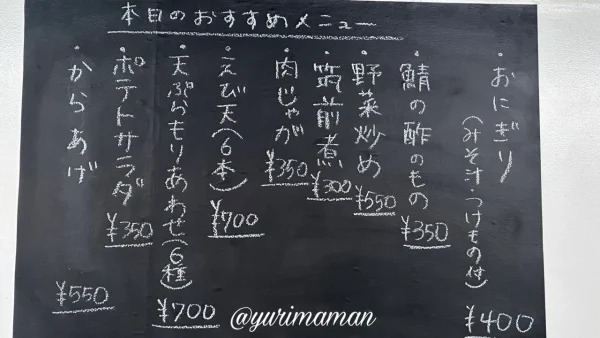 本日のおすすめメニュー
・おにぎり
(みそ汁・つけもの付)
¥400
・鯖の酢のもの
¥350
・野菜炒め
¥550
・筑前煮
¥300
・肉じゃが
¥350
・えび天(6本)
¥700
・天ぷらもりあわせ(6種)
¥700
・ポテトサラダ
¥350
・からあげ
¥550
@yurimaman